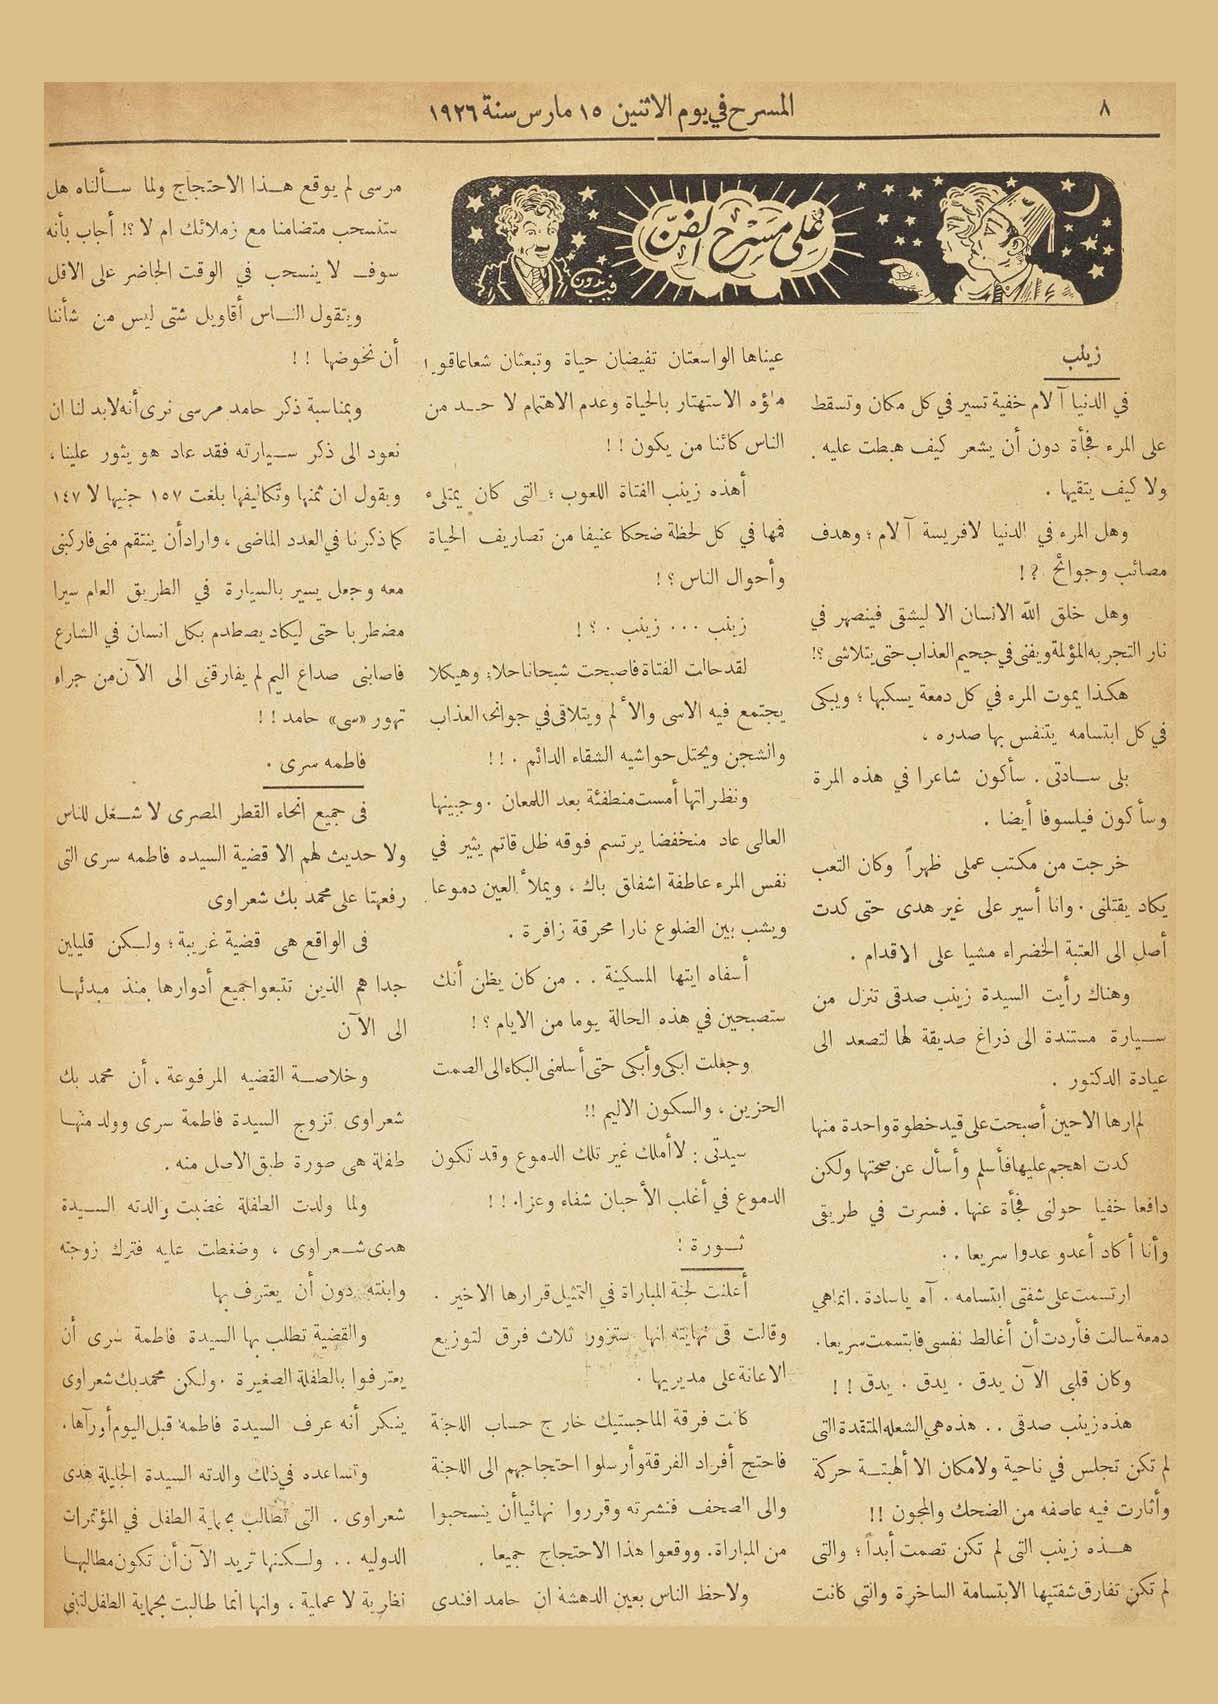 ٨
المسرح في يوم الاثنين ١٥ مارس سنة ١٩٢٦
على مسرح الفن
فيدون
زينب
في الدنيا آلام خفية تسير في كل مكان وتسقط
على المرء فجأة دون أن يشعر كيف هبطت عليه .
ولا كيف يتقيها .
وهل المرء في الدنيا لافريسة آلام ؛ وهدف
مصائب وجوائح ؟!
وهل خلق الله الانسان الا ليشقى فينصهر في
نار التجربه المؤلمة ويفنى في جحيم العذاب حتى يتلاشى ؟!
هكذا يموت المرء في كل دمعة يسكبها ؛ ويبكى
في كل ابتسامه يتنفس بها صدره ،
بلى سادتى . سأكون شاعرا في هذه المرة
وسأكون فيلسوفا أيضا .
خرجت من مكتب عملى ظهراً وكان التعب
يكاد يقتلنى . وانا أسير على غير هدى حتى كدت
أصل الى العتبة الخضراء مشيا على الاقدام .
وهناك رأيت السيدة زينب صدقى تنزل من
سيارة مستندة الى ذراع صديقة لها لتصعد الى
عيادة الدكتور .
لم ارها الاحين أصبحت على قيد خطوة واحدة منها
كدت اهجم عليها فأسلم وأسأل عن صحتها ولكن
دافعا خفيا حولنى فجأة عنها . فسرت في طريقى
وأنا أكاد أعدو عدوا سريعا . .
ارتسمت على شفتى ابتسامه . آه ياسادة . انما هي
دمعة سالت فأردت أن أغالط نفسى فابتسمت سريعا .
وكان قلبى الآن يدق . يدق . يدق ! !
هذه زينب صدقى . . هذه هي الشعله المتقدة التى
لم تكن تجلس في ناحية ولا مكان الا ألهبته حركة
وأثارت فيه عاصفه من الضحك والمجون !!
هذه زينب التى لم تكن تصمت أبداً ؛ والتى
لم تكن تفارق شفتيها الابتسامة الساخرة والتى كانت
عيناها الواسعتان تفيضان حياة وتبعثان شعاعا قويا
ملؤه الاستهتار بالحياة وعدم الاهتمام لا حد من
الناس كائنا من يكون ! !
أهذه زينب الفتاة اللعوب ؛ التى كان يمتلىء
فمها في كل لحظة ضحكا عنيفا من تصاريف الحياة
وأحوال الناس ؟ !
زينب . . . زينب . ؟ !
لقد حالت الفتاة فاصبحت شبحا ناحلا ؛ وهيكلا
يجتمع فيه الاسى والألم ويتلاقى في جوانحه العذاب
والشجن ويحتل حواشيه الشقاء الدائم . ! !
ونظراتها أمست منطفئة بعد اللمعان . وجبينها
العالى عاد منخفضا يرتسم فوقه ظل قاتم يثير في
نفس المرء عاطفة اشفاق باك ، ويملأ العين دموعا .
ويشب بين الضلوع نارا محرقة زافرة .
أسفاه ايتها المسكينة . . من كان يظن أنك
ستصبحين في هذه الحالة يوما من الايام ؟ !
وجعلت ابكى وأبكى حتى أسلمنى البكاء الى الصمت
الحزين ، والسكون الاليم !!
سيدتى : لا أملك غير تلك الدموع وقد تكون
الدموع في أغلب الأحيان شفاء وعزاء ! !
ثورة !
أعلنت لجنة المباراة في التمثيل قرارها الاخير .
وقالت في نهايته انها ستزور ثلاث فرق لتوزيع
الاعانة على مديريها .
كانت فرقة الماجستيك خارج حساب اللجنة
فاحتج أفراد الفرقة وأرسلوا احتجاجهم الى اللجنة
والى الصحف فنشرته وقرروا نهائيا أن ينسحبوا
من المباراة . ووقعوا هذا الاحتجاج جميعا .
ولاحظ الناس بعين الدهشه ان حامد افندى
مرسى لم يوقع هذا الاحتجاج ولما سألناه هل
ستنسحب متضامنا مع زملائك ام لا ؟! أجاب بأنه
سوف لا ينسحب في الوقت الحاضر على الاقل
ويتقول الناس أقاويل شتى ليس من شأننا
أن نخوضها ! !
وبمناسبة ذكر حامد مرسى نرى أنه لابد لنا ان
نعود الى ذكر سيارته فقد عاد هو يثور علينا ،
ويقول ان ثمنها وتكاليفها بلغت ١٥٧ جنيها لا ١٤٧
كما ذكرنا في العدد الماضى ، واراد أن ينتقم منى فاركبنى
معه وجعل يسير بالسيارة في الطريق العام سيرا
مضطربا حتى ليكاد يصطدم بكل انسان في الشارع
فاصابنى صداع اليم لم يفارقنى الى الآن من جراء
تهور «سى» حامد ! !
فاطمه سرى .
فى جميع انحاء القطر المصرى لا شغل للناس
ولا حديث لهم الا قضية السيده فاطمه سرى التى
رفعتها على محمد بك شعراوى
فى الواقع هى قضية غريبة ؛ ولكن قليلين
جدا هم الذين تتبعوا جميع أدوارها منذ مبدئها
الى الآن
وخلاصة القضيه المرفوعة ، أن محمد بك
شعراوى تزوج السيدة فاطمة سرى وولد منها
طفلة هى صورة طبق الاصل منه .
ولما ولدت الطفلة غضبت والدته السيدة
هدى شعراوى ، وضغطت عليه فترك زوجته
وابنته دون أن يعترف بها
والقضية تطلب بها السيدة فاطمة سرى أن
يعترفوا بالطفلة الصغيرة . ولكن محمد بك شعراوى
ينكر أنه عرف السيدة فاطمه قبل اليوم أو رآها .
وتساعده في ذلك والدته السيدة الجليلة هدى
شعراوى . التى تطالب بحماية الطفل في المؤتمرات
الدوليه . . ولكنها تريد الآن أن تكون مطالبها
نظرية لا عملية ، وانها انما طالبت بحماية الطفل لتبنى